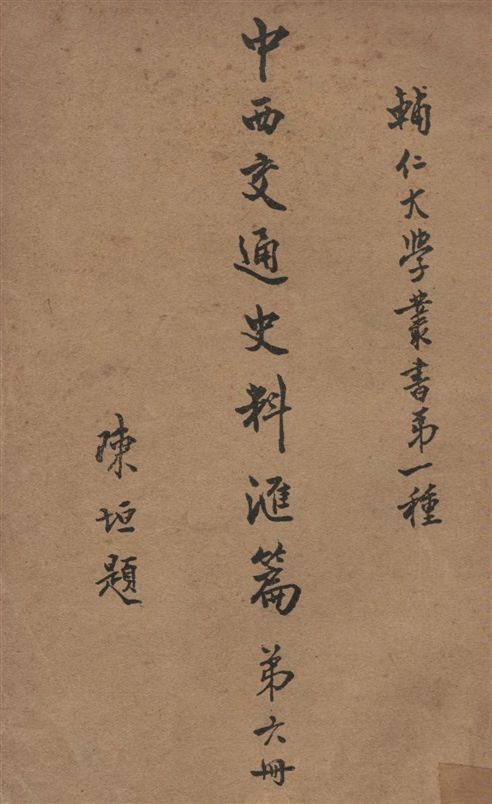 輔仁大学叢書第一種
中西交通史料滙篇第六冊
陳垣題